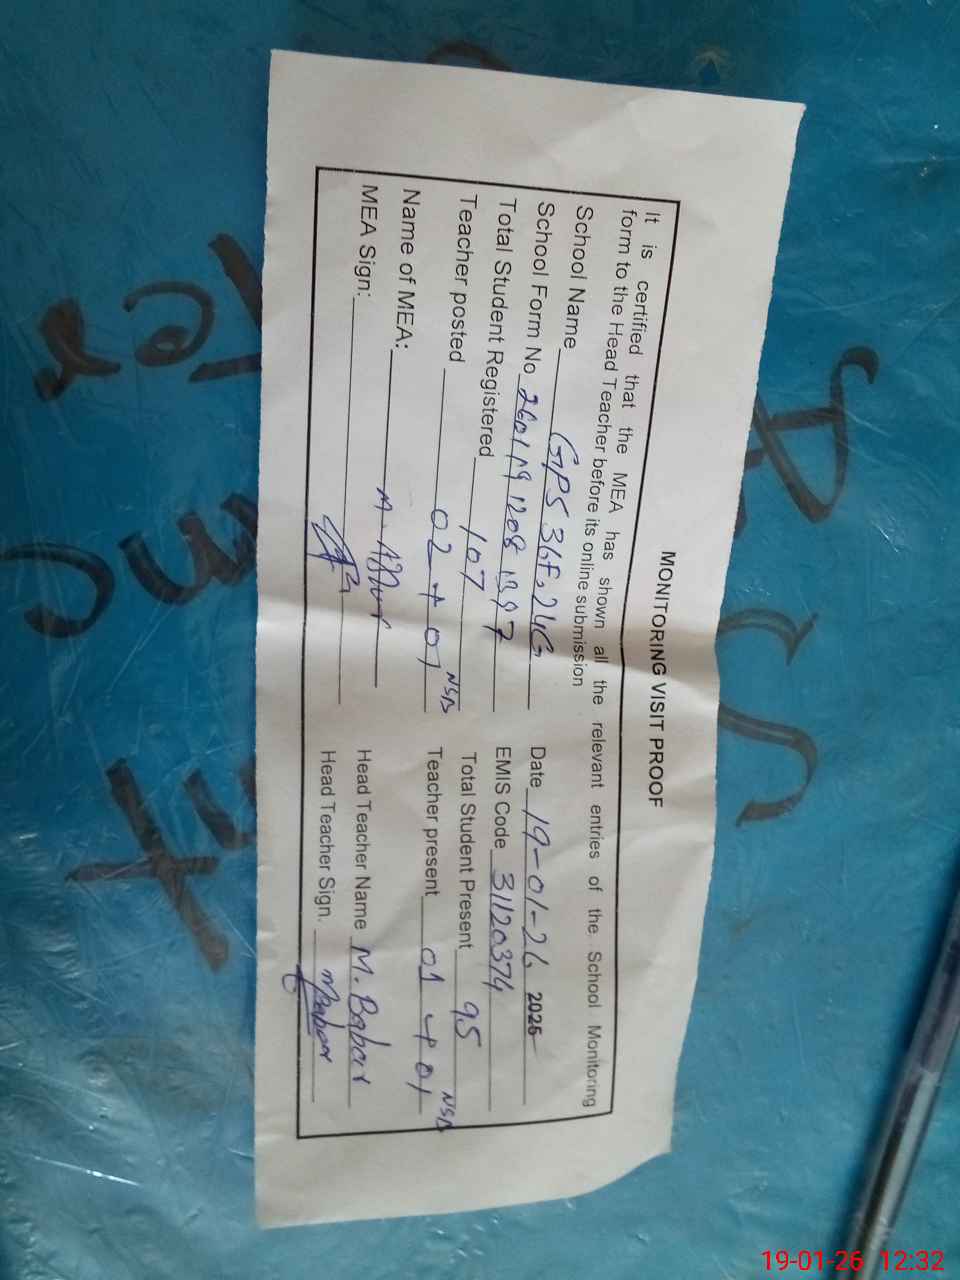 MONITORING VISIT PROOF
It is certified that the MEA has shown all the relevant entries of the School Monitoring
form to the Head Teacher before its online submission
School Name GPS 36F, 24G
School Form No 260119 1208 1397 Date 19-01-26 2025
Total Student Registered 107 EMIS Code 31120374
Teacher posted 02 + 01 NSB Total Student Present 95
Teacher present 01 + 01 NSB
Name of MEA: M. Head Teacher Name M. Babar
MEA Sign: Head Teacher Sign. MBabar
19-01-26 12:32